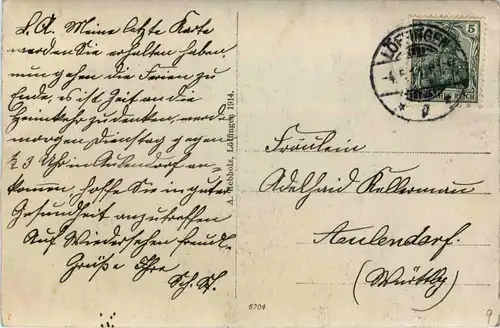 L. A. Meine letzte Karte
werden Sie erhalten haben,
nun gehen die Ferien zu
Ende, es ist Zeit an die
Heimkehr zu denken, werde
morgen Dienstag gegen
½ 3 Uhr in Aulendorf an-
kommen, hoffe Sie in guter
Gesundheit anzutreffen
Auf Wiedersehen freundl.
Grüße Ihre
Sch. St.
A. Rebholz, Löffingen 1914.
6204
LÖFFINGEN
5
REICH
Fräulein
Adelhaid Kellermau
Aulendorf.
(Württbg)
9